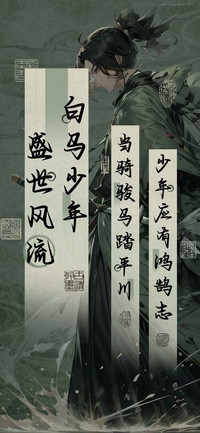 少年应有鸿鹄志
当骑骏马踏平川
白马少年
盛世风流